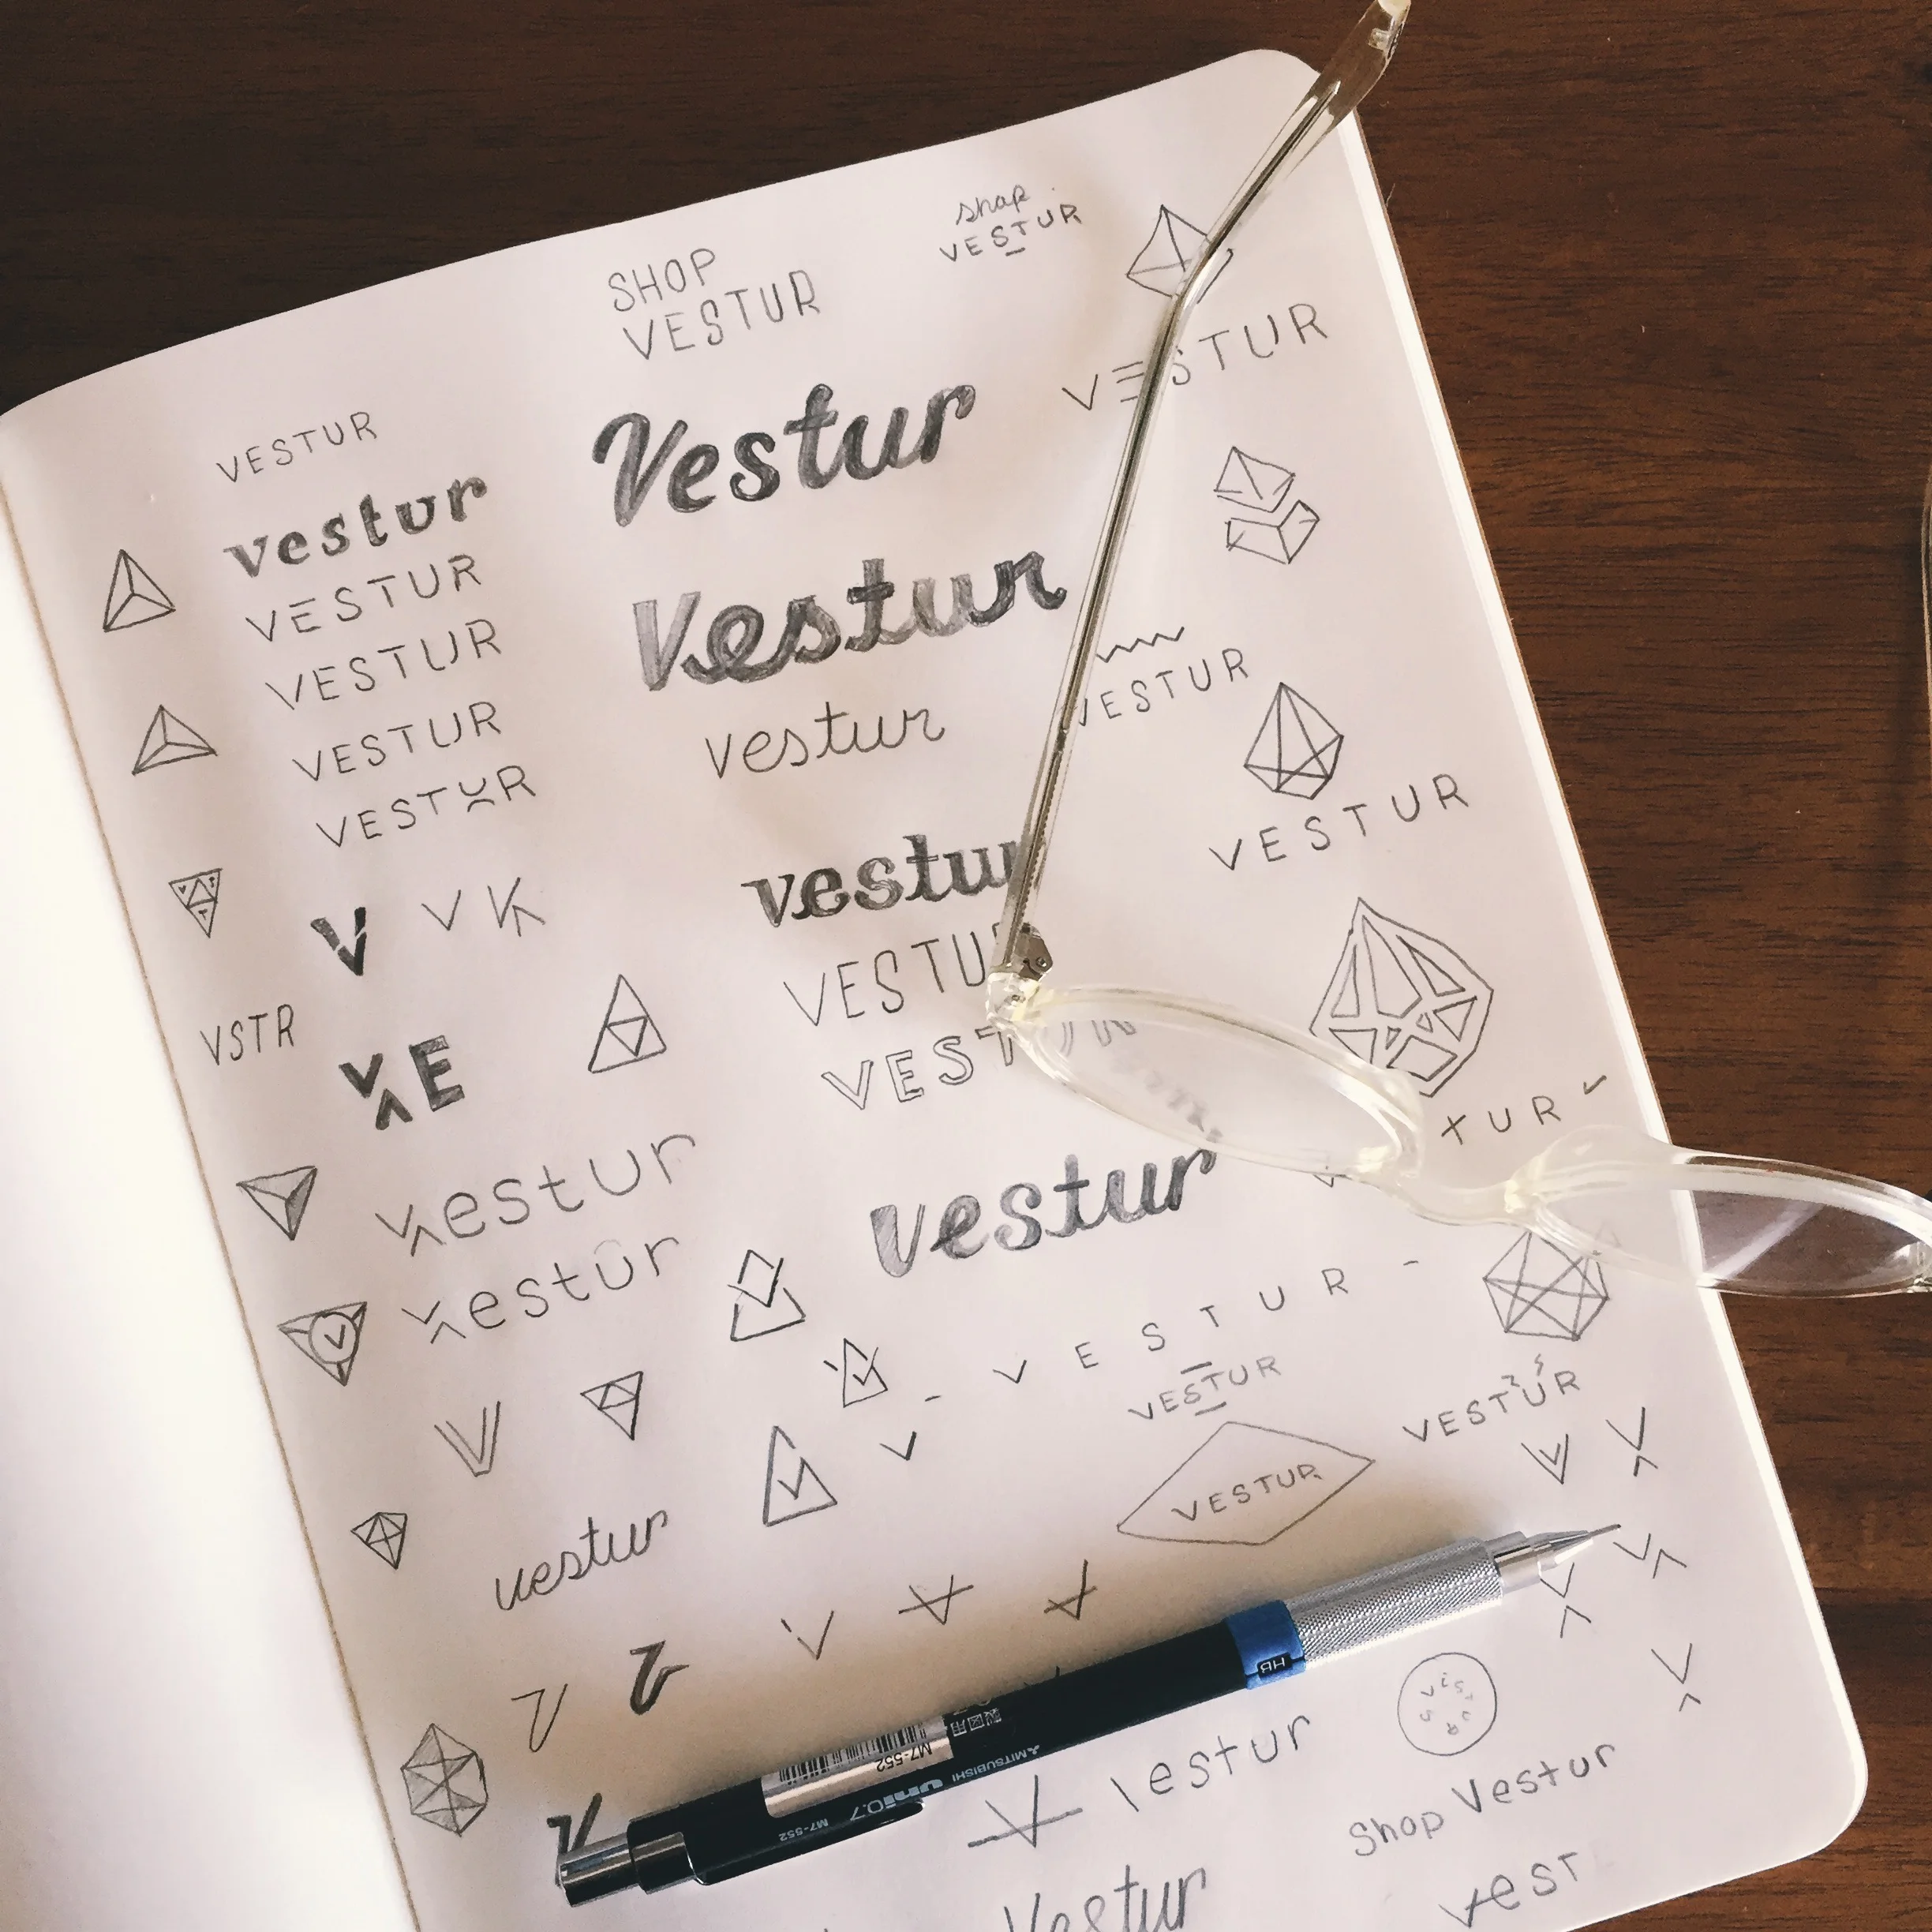 shop
VESTUR
SHOP
VESTUR
VESTUR
VESTUR
Vestur
vestur
VESTUR
Vestur
VESTUR
VESTUR
vestur
VESTUR
VESTUR
VESTUR
vestur
V VK
VESTUR
VSTR
VE
VEST
XUR
vestur
vestur
vestur
VESTUR
VESTUR
VESTUR
V
VESTUR
vestur
V
HB
M7-552
MITSUBISHI uni 0.7
M7-552
VESTUR
Vestur
Shop Vestur
Vestur
vest